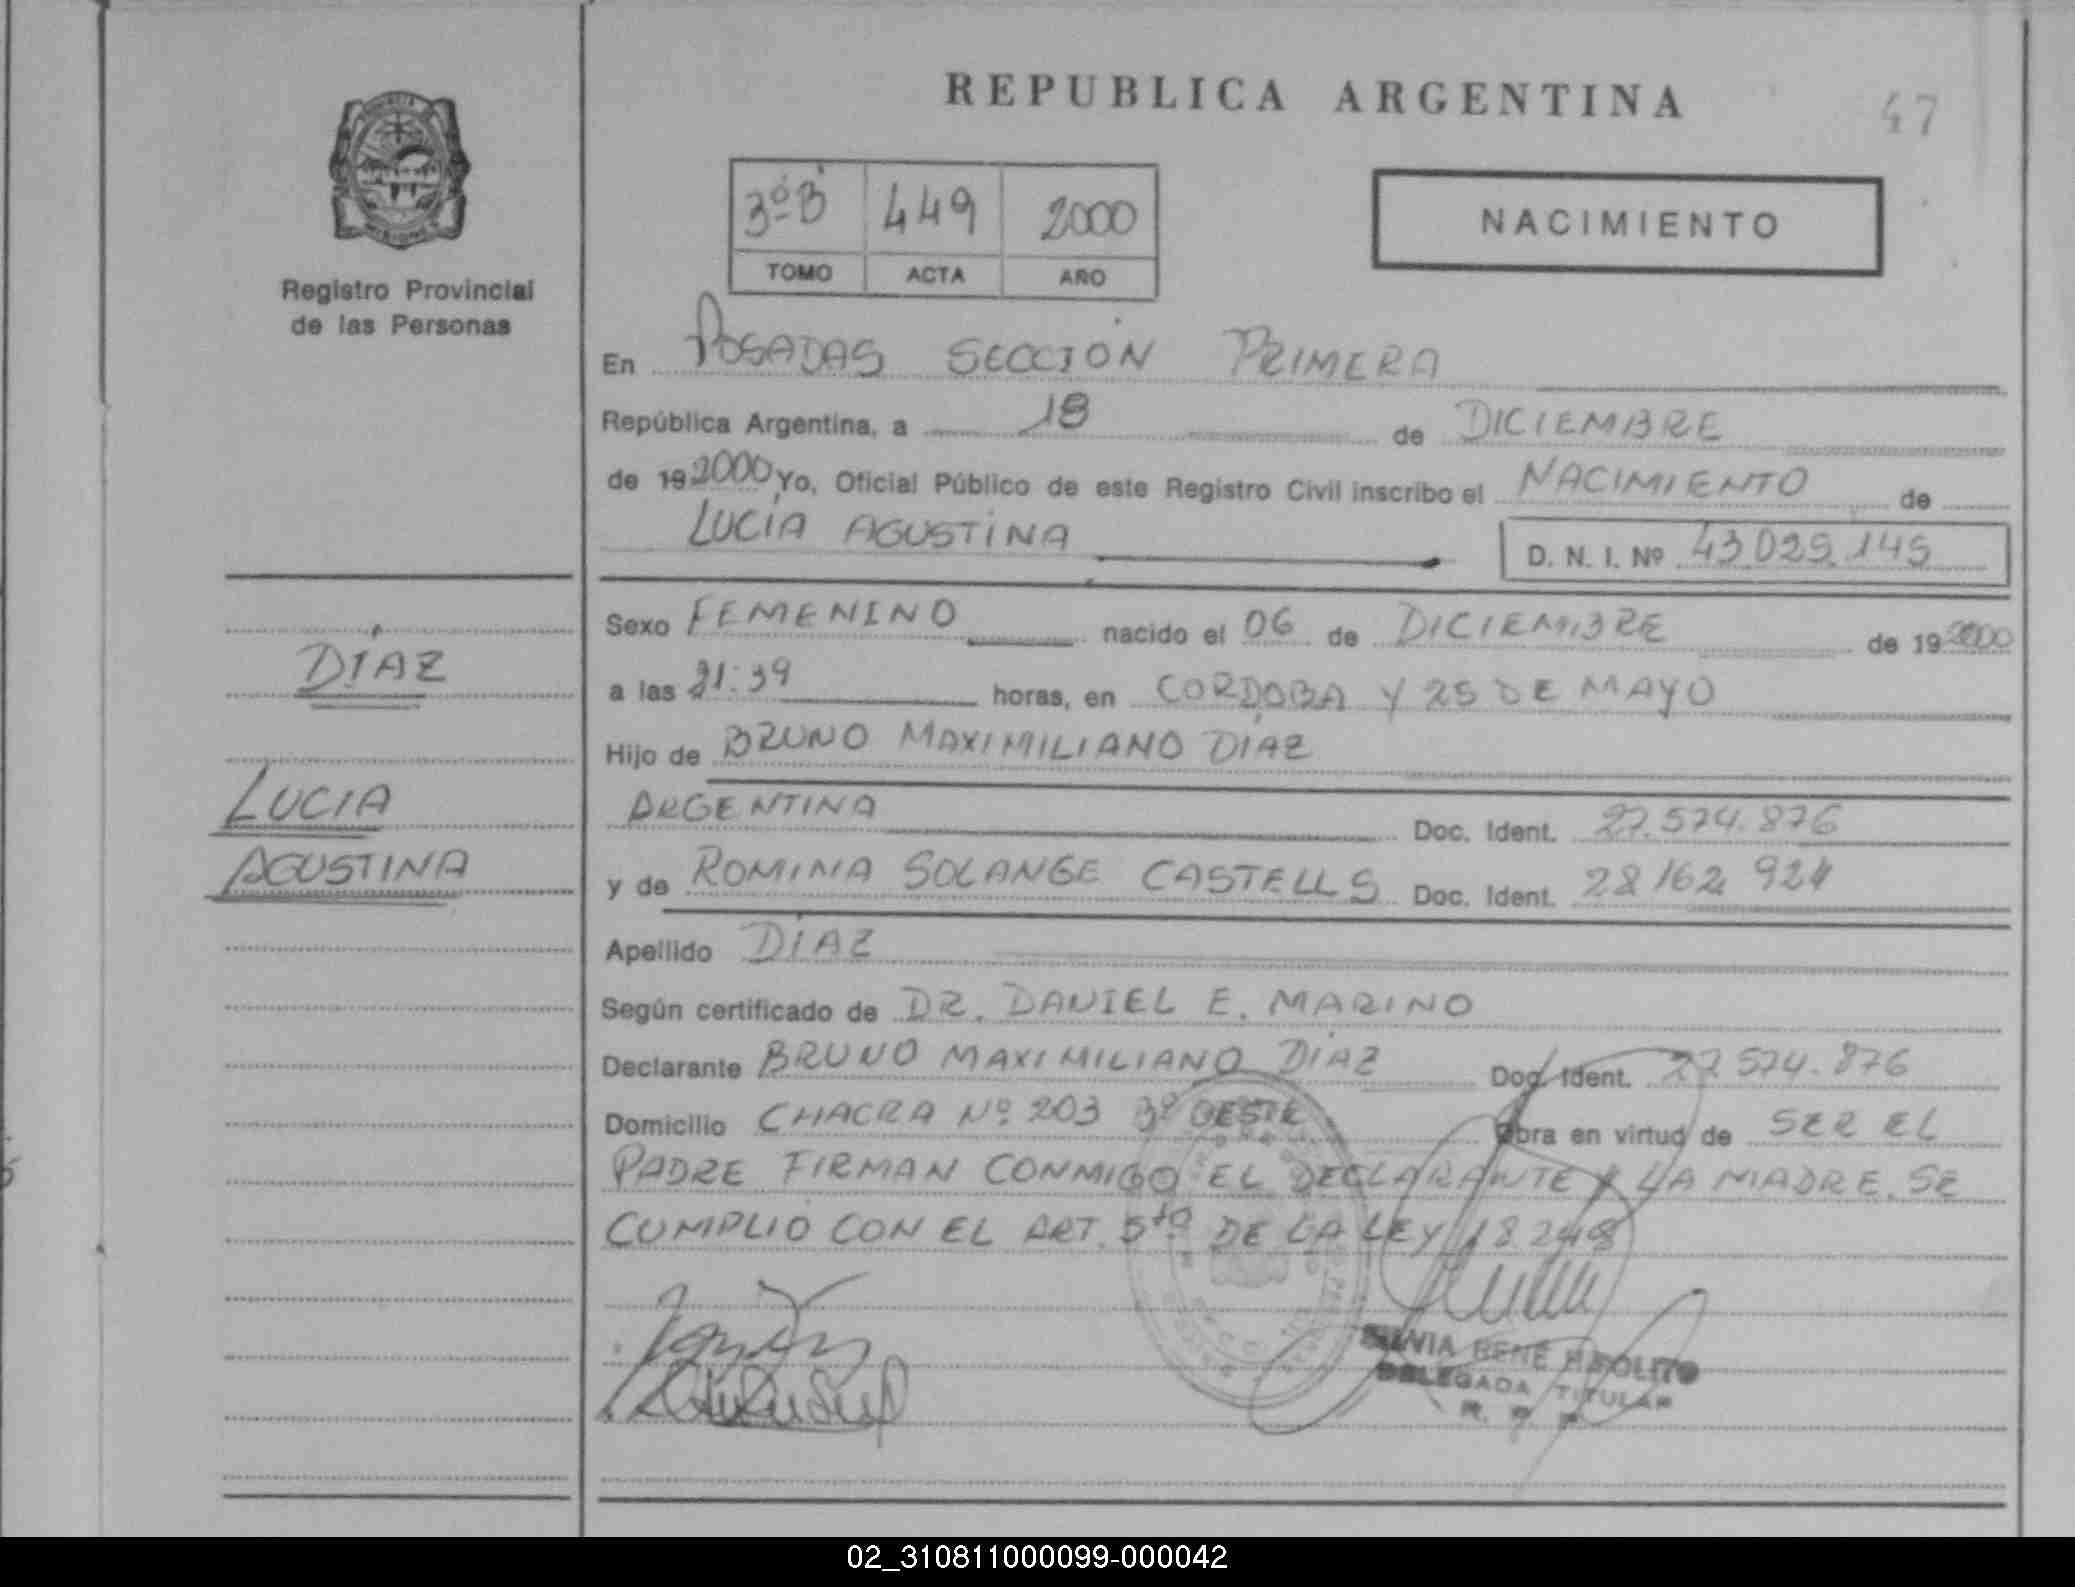 REPUBLICA ARGENTINA
47
3º B 449 2000
TOMO ACTA AÑO
NACIMIENTO
Registro Provincial
de las Personas
En POSADAS SECCIÓN PRIMERA
República Argentina, a 18 de DICIEMBRE
de 19 2000 Yo, Oficial Público de este Registro Civil inscribo el NACIMIENTO de
LUCÍA AGUSTINA
D. N. I. Nº 43.029.145
DÍAZ
LUCIA
AGUSTINA
Sexo FEMENINO nacido el 06 de DICIEMBRE de 19 2000
a las 21:39 horas, en CORDOBA Y 25 DE MAYO
Hijo de BRUNO MAXIMILIANO DÍAZ
ARGENTINA Doc. Ident. 27.574.876
y de ROMINA SOLANGE CASTELLS Doc. Ident. 28 162 924
Apellido DÍAZ
Según certificado de DR. DANIEL E. MARINO
Declarante BRUNO MAXIMILIANO DÍAZ Doc. Ident. 27 574.876
Domicilio CHACRA Nº 203 Bº OESTE Obra en virtud de SER EL
PADRE FIRMAN CONMIGO EL DECLARANTE Y LA MADRE. SE
CUMPLIO CON EL ART. 5to DE LA LEY 18.248
SILVIA RENE HIPOLITO
DELEGADA TITULAR
R. P. P.
02_310811000099-000042